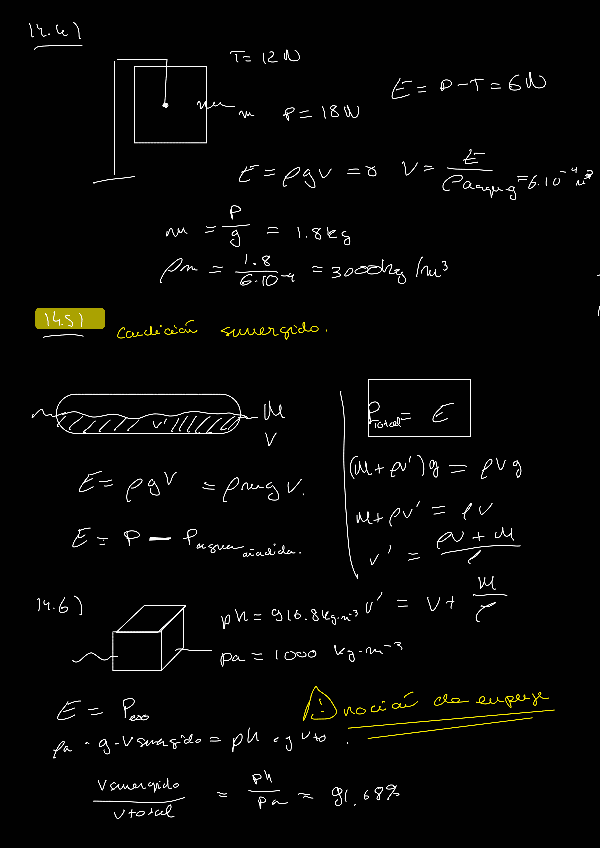 14.4)
T = 12 N
m P = 18 N
E = P - T = 6 N
E = ρgV => V = E / ρagua g = 6·10⁻⁴ m³
m = P/g = 1.8 kg
ρm = 1.8 / 6·10⁻⁴ = 3000 kg/m³
14.5) Condición sumergido.
V' M
V
E = ρgV = ρmgV.
E = P - Pagua añadida.
PTotal = E
(M + ρV')g = ρVg
M + ρV' = ρV
V' = ρV + M / ρ
V' = V + M / ρ
14.6)
ρh = 916.8 kg·m⁻³
ρa = 1000 kg·m⁻³
E = Peso
ρa · g · Vsumergido = ρh · g Vto .
Vsumergido / Vtotal = ρh / ρa = 91.68%
! noción de empuje